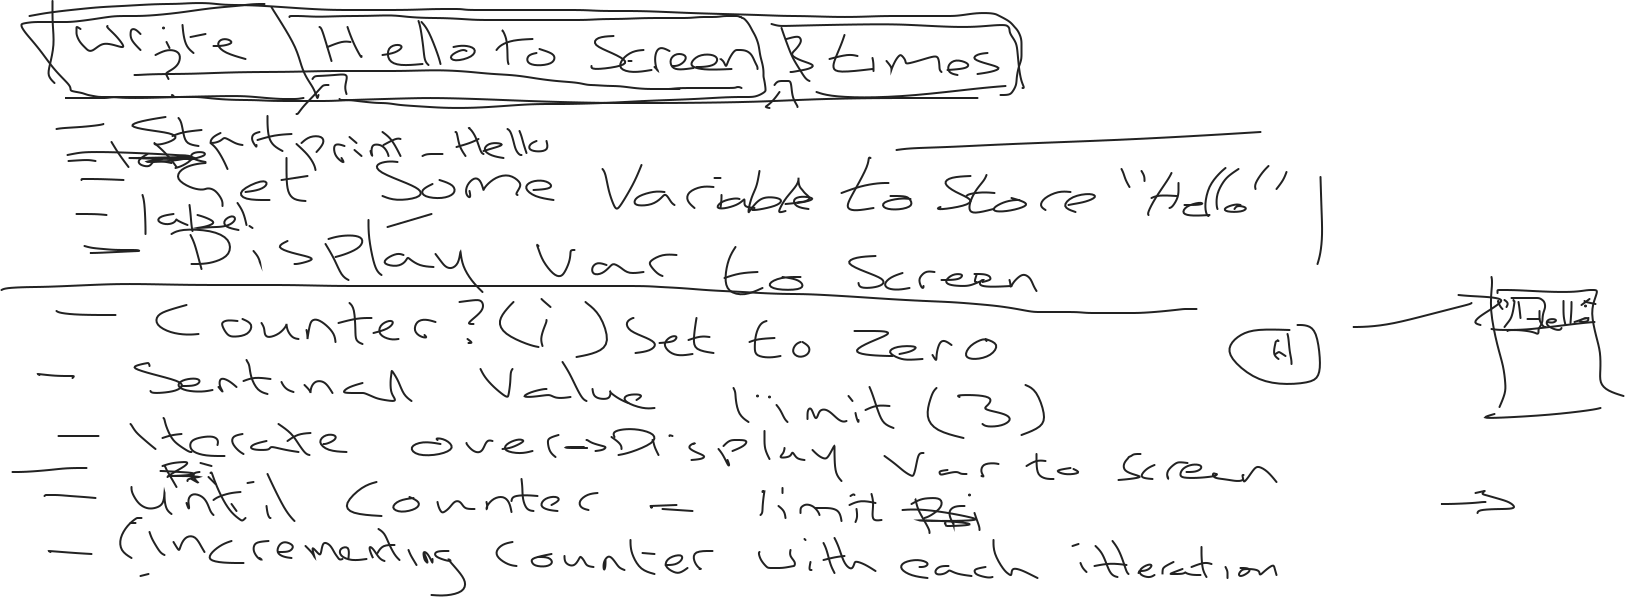 Write Hello to Screen 3 times
- Start print_Hello
- Set Some Variable to Store "Hello"
- label
- Display var to Screen
- Counter? (i) Set to Zero
- Sentinal Value limit (3)
- iterate over → Display var to screen
- until Counter = limit
- (incrementing counter with each itteration
"Hello"